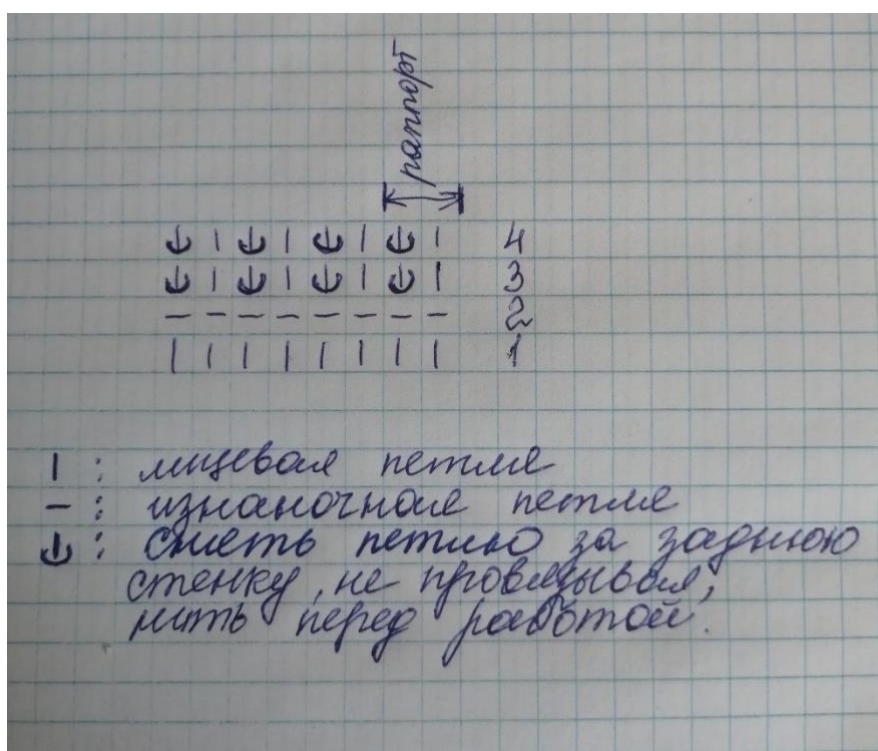 раппорт
↓ | ↓ | ↓ | ↓ | 4
↓ | ↓ | ↓ | ↓ | 3
— — — — — — — — 2
| | | | | | | | 1
| : лицевая петля
— : изнаночная петля
↓ : снять петлю за заднюю
стенку, не провязывая,
нить перед работой.